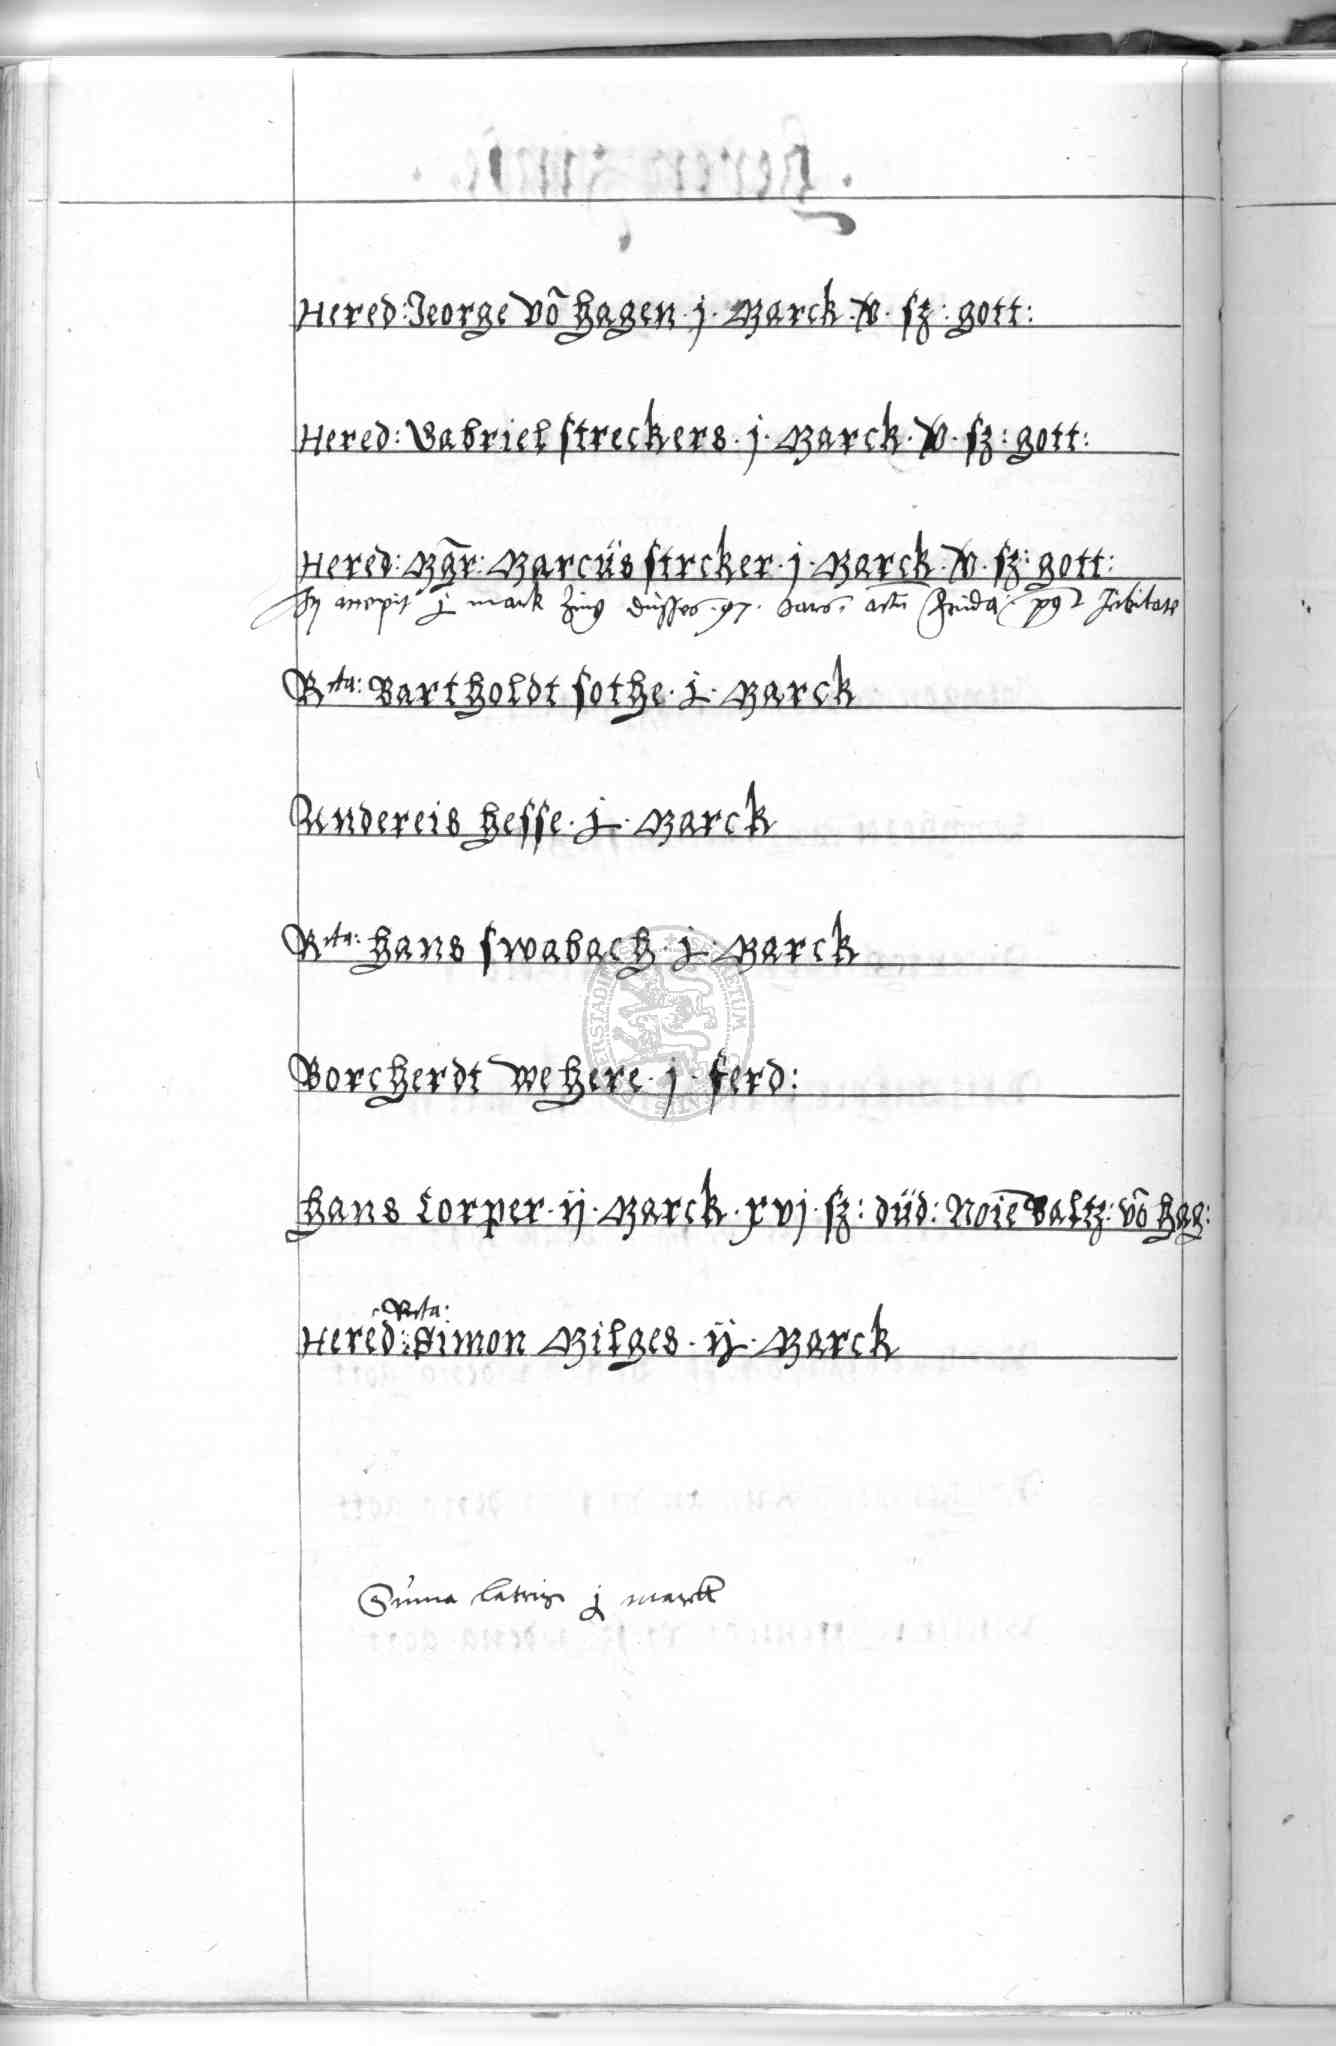 Hered: Jeorge võ hagen · j · Marck · v · sz: gott:
Hered: Gabriel streckers · j · Marck · v · sz: gott:
Hered: Mgr: Marcüs strcker · j · Marck · v · sz: gott:
accepit j mark 97
Rta: Bartholdt sothe · j · Marck
Andereis hesse · j · Marck
Rta: hans swabach · j · Marck
Borcherdt wehere · j · ferd:
hans Corper · ij · Marck · xvj · sz: düd: Noie Baltz: võ hag:
Rta:
Hered: Simon Milges · ij · Marck
Suma lateris j marck